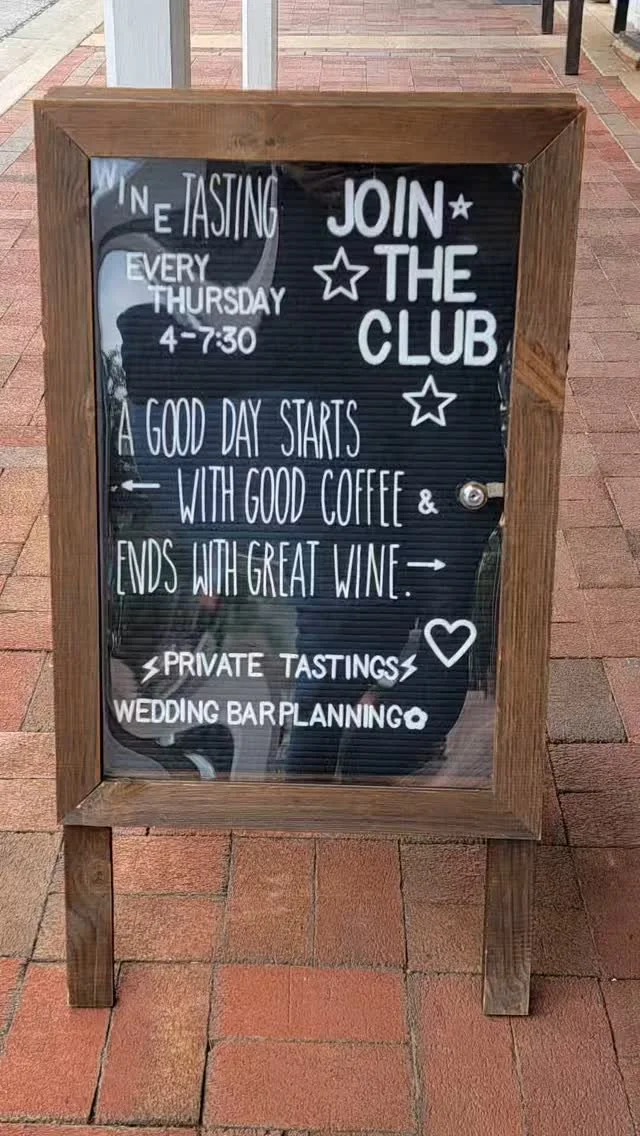 WINE TASTING
EVERY
THURSDAY
4-7:30
JOIN
THE
CLUB
A GOOD DAY STARTS
← WITH GOOD COFFEE &
ENDS WITH GREAT WINE. →
PRIVATE TASTINGS
WEDDING BAR PLANNING